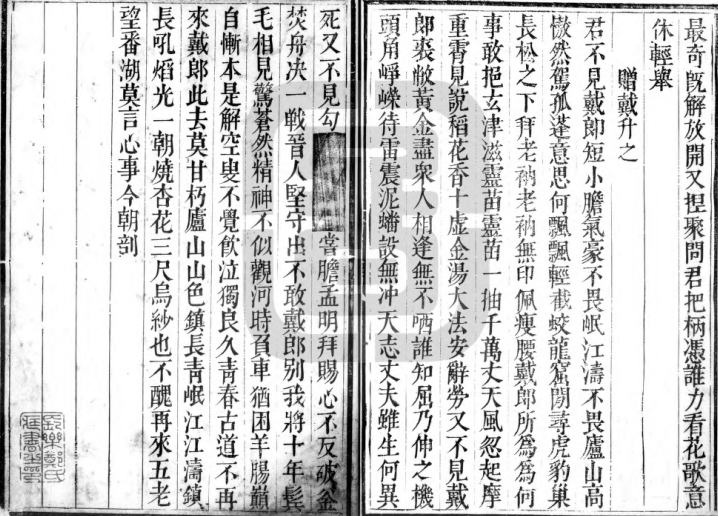 最奇旣解放開又捏聚問君把柄憑誰力看花歌意
休輕舉
贈戴升之
君不見戴郎短小膽氣豪不畏岷江濤不畏廬山高
傲然駕孤蓬意思何飄飄輕截蛟龍窟閒尋虎豹巢
長松之下拜老衲老衲無印佩瘦腰戴郎所爲爲何
事敢挹玄津滋靈苗靈苗一抽千萬丈天風忽起摩
重霄見說稻花香十虛金湯大法安辭勞又不見戴
郎裘敝黃金盡衆人相逢無不哂誰知屈乃伸之機
頭角崢嶸待雷震泥蟠設無冲天志丈夫雖生何異
死又不見勾
嘗膽孟明拜賜心不反破金
焚舟决一戰晉人堅守出不敢戴郎別我將十年鬓
毛相見驚蒼然精神不似觀河時負車猶困羊腸巔
自慚本是解空叟不覺飲泣獨良久青春古道不再
來戴郎此去莫甘朽廬山山色鎮長青岷江江濤鎮
長吼熖光一朝燒杏花三尺烏紗也不醜再來五老
望番湖莫言心事今朝剖